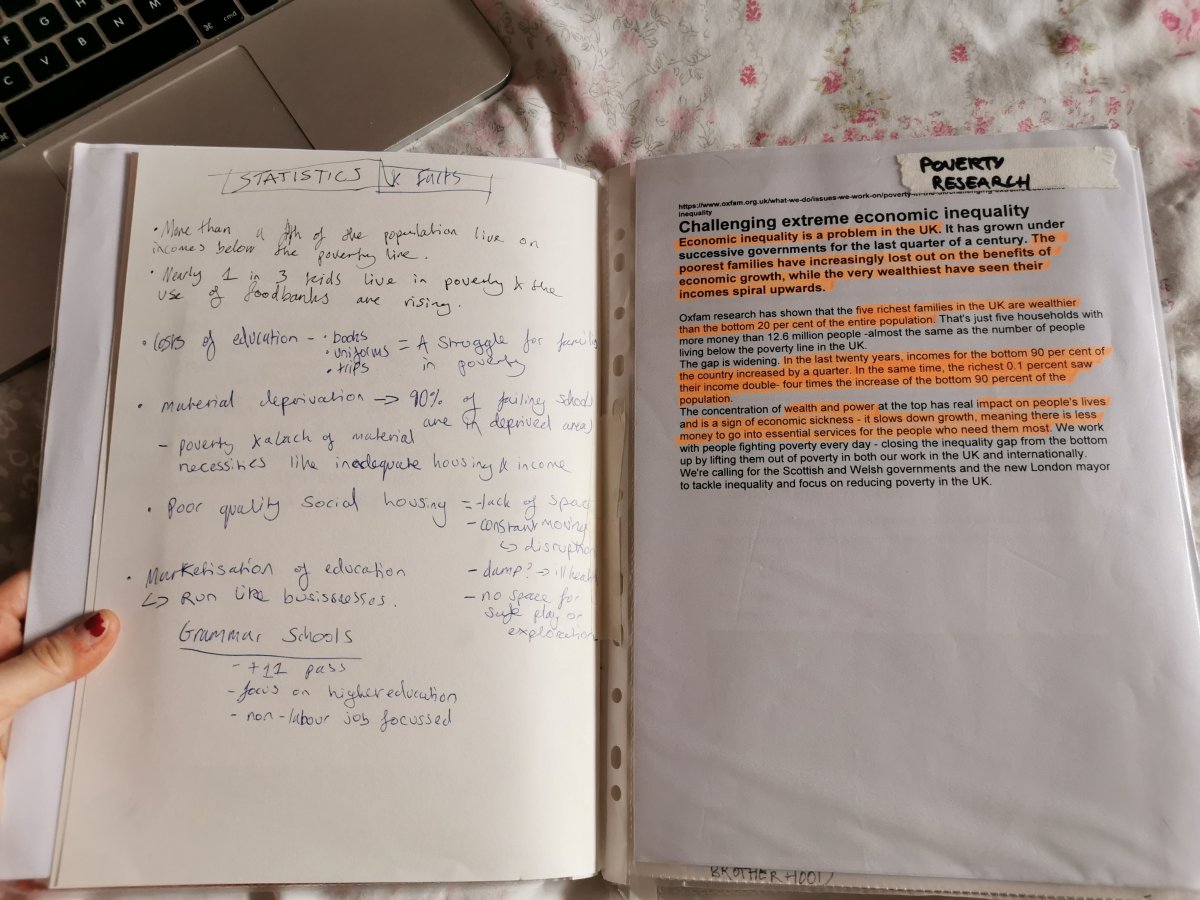 STATISTICS & Facts
• More than a 5th of the population live on
incomes below the poverty line.
• Nearly 1 in 3 kids live in poverty & the
use of foodbanks are rising.
• Costs of education - • books
• uniforms = A Struggle for families
• trips in poverty
• material deprivation → 90% of failing schools
are in deprived areas
- poverty & a lack of material
necessities like inadequate housing & income
• Poor quality social housing = - lack of space
- constant moving
↳ disruption
• Marketisation of education
- damp? → ill health
↳ Run like busisnesses.
- no space for
safe play or
exploration
Grammar Schools
- +11 pass
- focus on higher education
- non-labour job focussed
POVERTY
RESEARCH
https://www.oxfam.org.uk/what-we-do/issues-we-work-on/poverty-in-the-uk/challenging-extreme-economic-
inequality
Challenging extreme economic inequality
Economic inequality is a problem in the UK. It has grown under
successive governments for the last quarter of a century. The
poorest families have increasingly lost out on the benefits of
economic growth, while the very wealthiest have seen their
incomes spiral upwards.
Oxfam research has shown that the five richest families in the UK are wealthier
than the bottom 20 per cent of the entire population. That's just five households with
more money than 12.6 million people -almost the same as the number of people
living below the poverty line in the UK.
The gap is widening. In the last twenty years, incomes for the bottom 90 per cent of
the country increased by a quarter. In the same time, the richest 0.1 percent saw
their income double- four times the increase of the bottom 90 percent of the
population.
The concentration of wealth and power at the top has real impact on people's lives
and is a sign of economic sickness - it slows down growth, meaning there is less
money to go into essential services for the people who need them most. We work
with people fighting poverty every day - closing the inequality gap from the bottom
up by lifting them out of poverty in both our work in the UK and internationally.
We're calling for the Scottish and Welsh governments and the new London mayor
to tackle inequality and focus on reducing poverty in the UK.
BROTHERHOOD
F G H J K
C V B N M
⌘ cmd